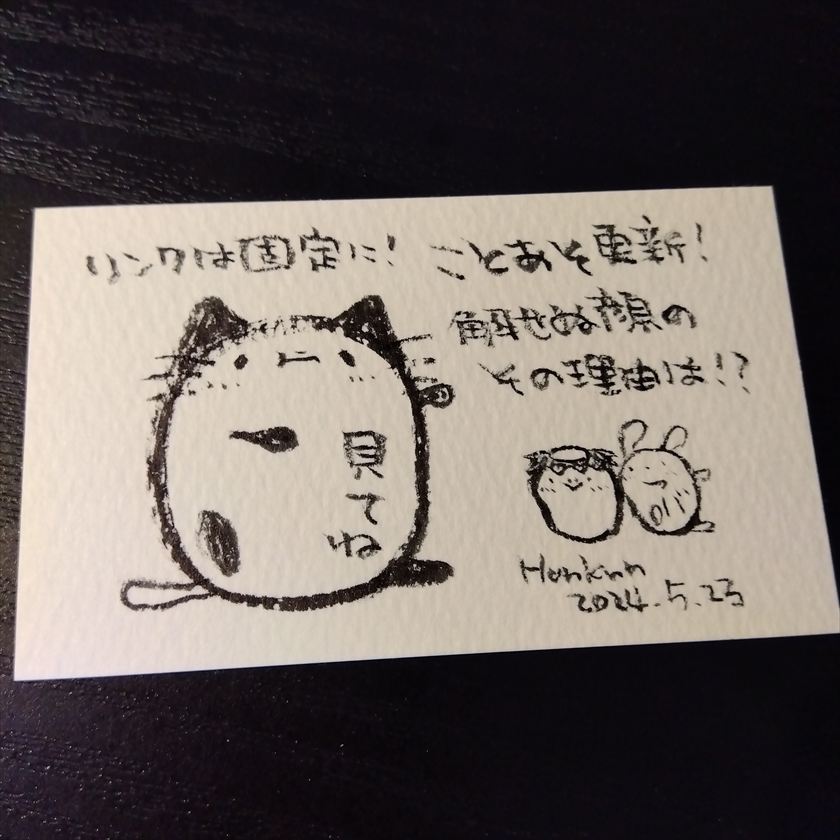 リンクは固定に!
ことあそ更新!
解せぬ顔の
その理由は!?
見てね
Honkun
2024.5.23